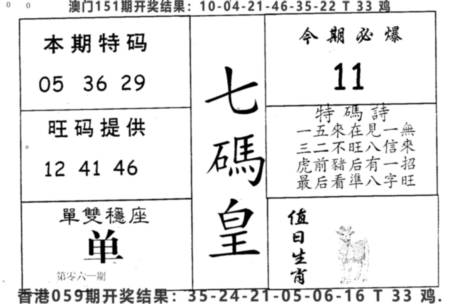 澳门151期开奖结果：10-04-21-46-35-22 T 33 鸡
本期特码
05 36 29
旺码提供
12 41 46
單雙穩座
单
第零六一期
七碼皇
今期必爆
11
特碼詩
一五來在見一無
三二不旺八信來
虎前豬后有一招
最后看準八字旺
值日生肖
香港059期开奖结果：35-24-21-05-06-16 T 33 鸡.